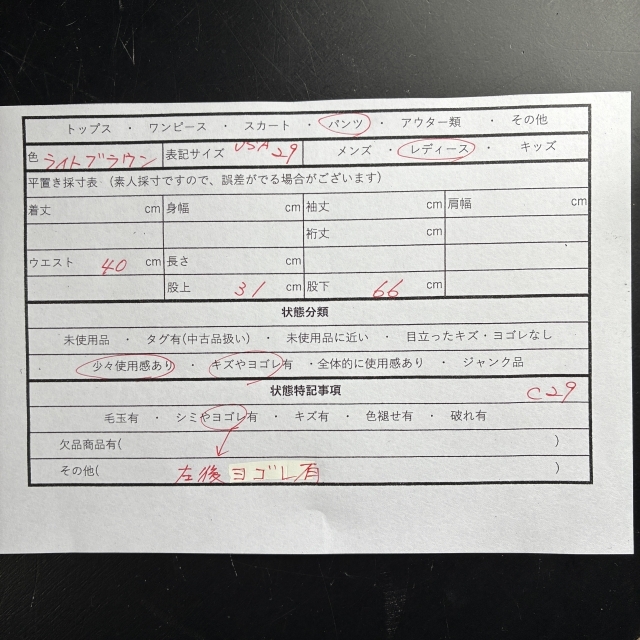 トップス ・ ワンピース ・ スカート ・ パンツ ・ アウター類 ・ その他
色 ライトブラウン 表記サイズ USA 29 メンズ ・ レディース ・ キッズ
平置き採寸表 (素人採寸ですので、誤差がでる場合がございます)
着丈 cm 身幅 cm 袖丈 cm 肩幅 cm
裄丈 cm
ウエスト 40 cm 長さ cm
股上 31 cm 股下 66 cm
状態分類
未使用品 ・ タグ有(中古品扱い) ・ 未使用品に近い ・ 目立ったキズ・ヨゴレなし
少々使用感あり ・ キズやヨゴレ有 ・全体的に使用感あり ・ ジャンク品
状態特記事項 C29
毛玉有 ・ シミやヨゴレ有 ・ キズ有 ・ 色褪せ有 ・ 破れ有
欠品商品有( )
その他( 左後ヨゴレ有 )